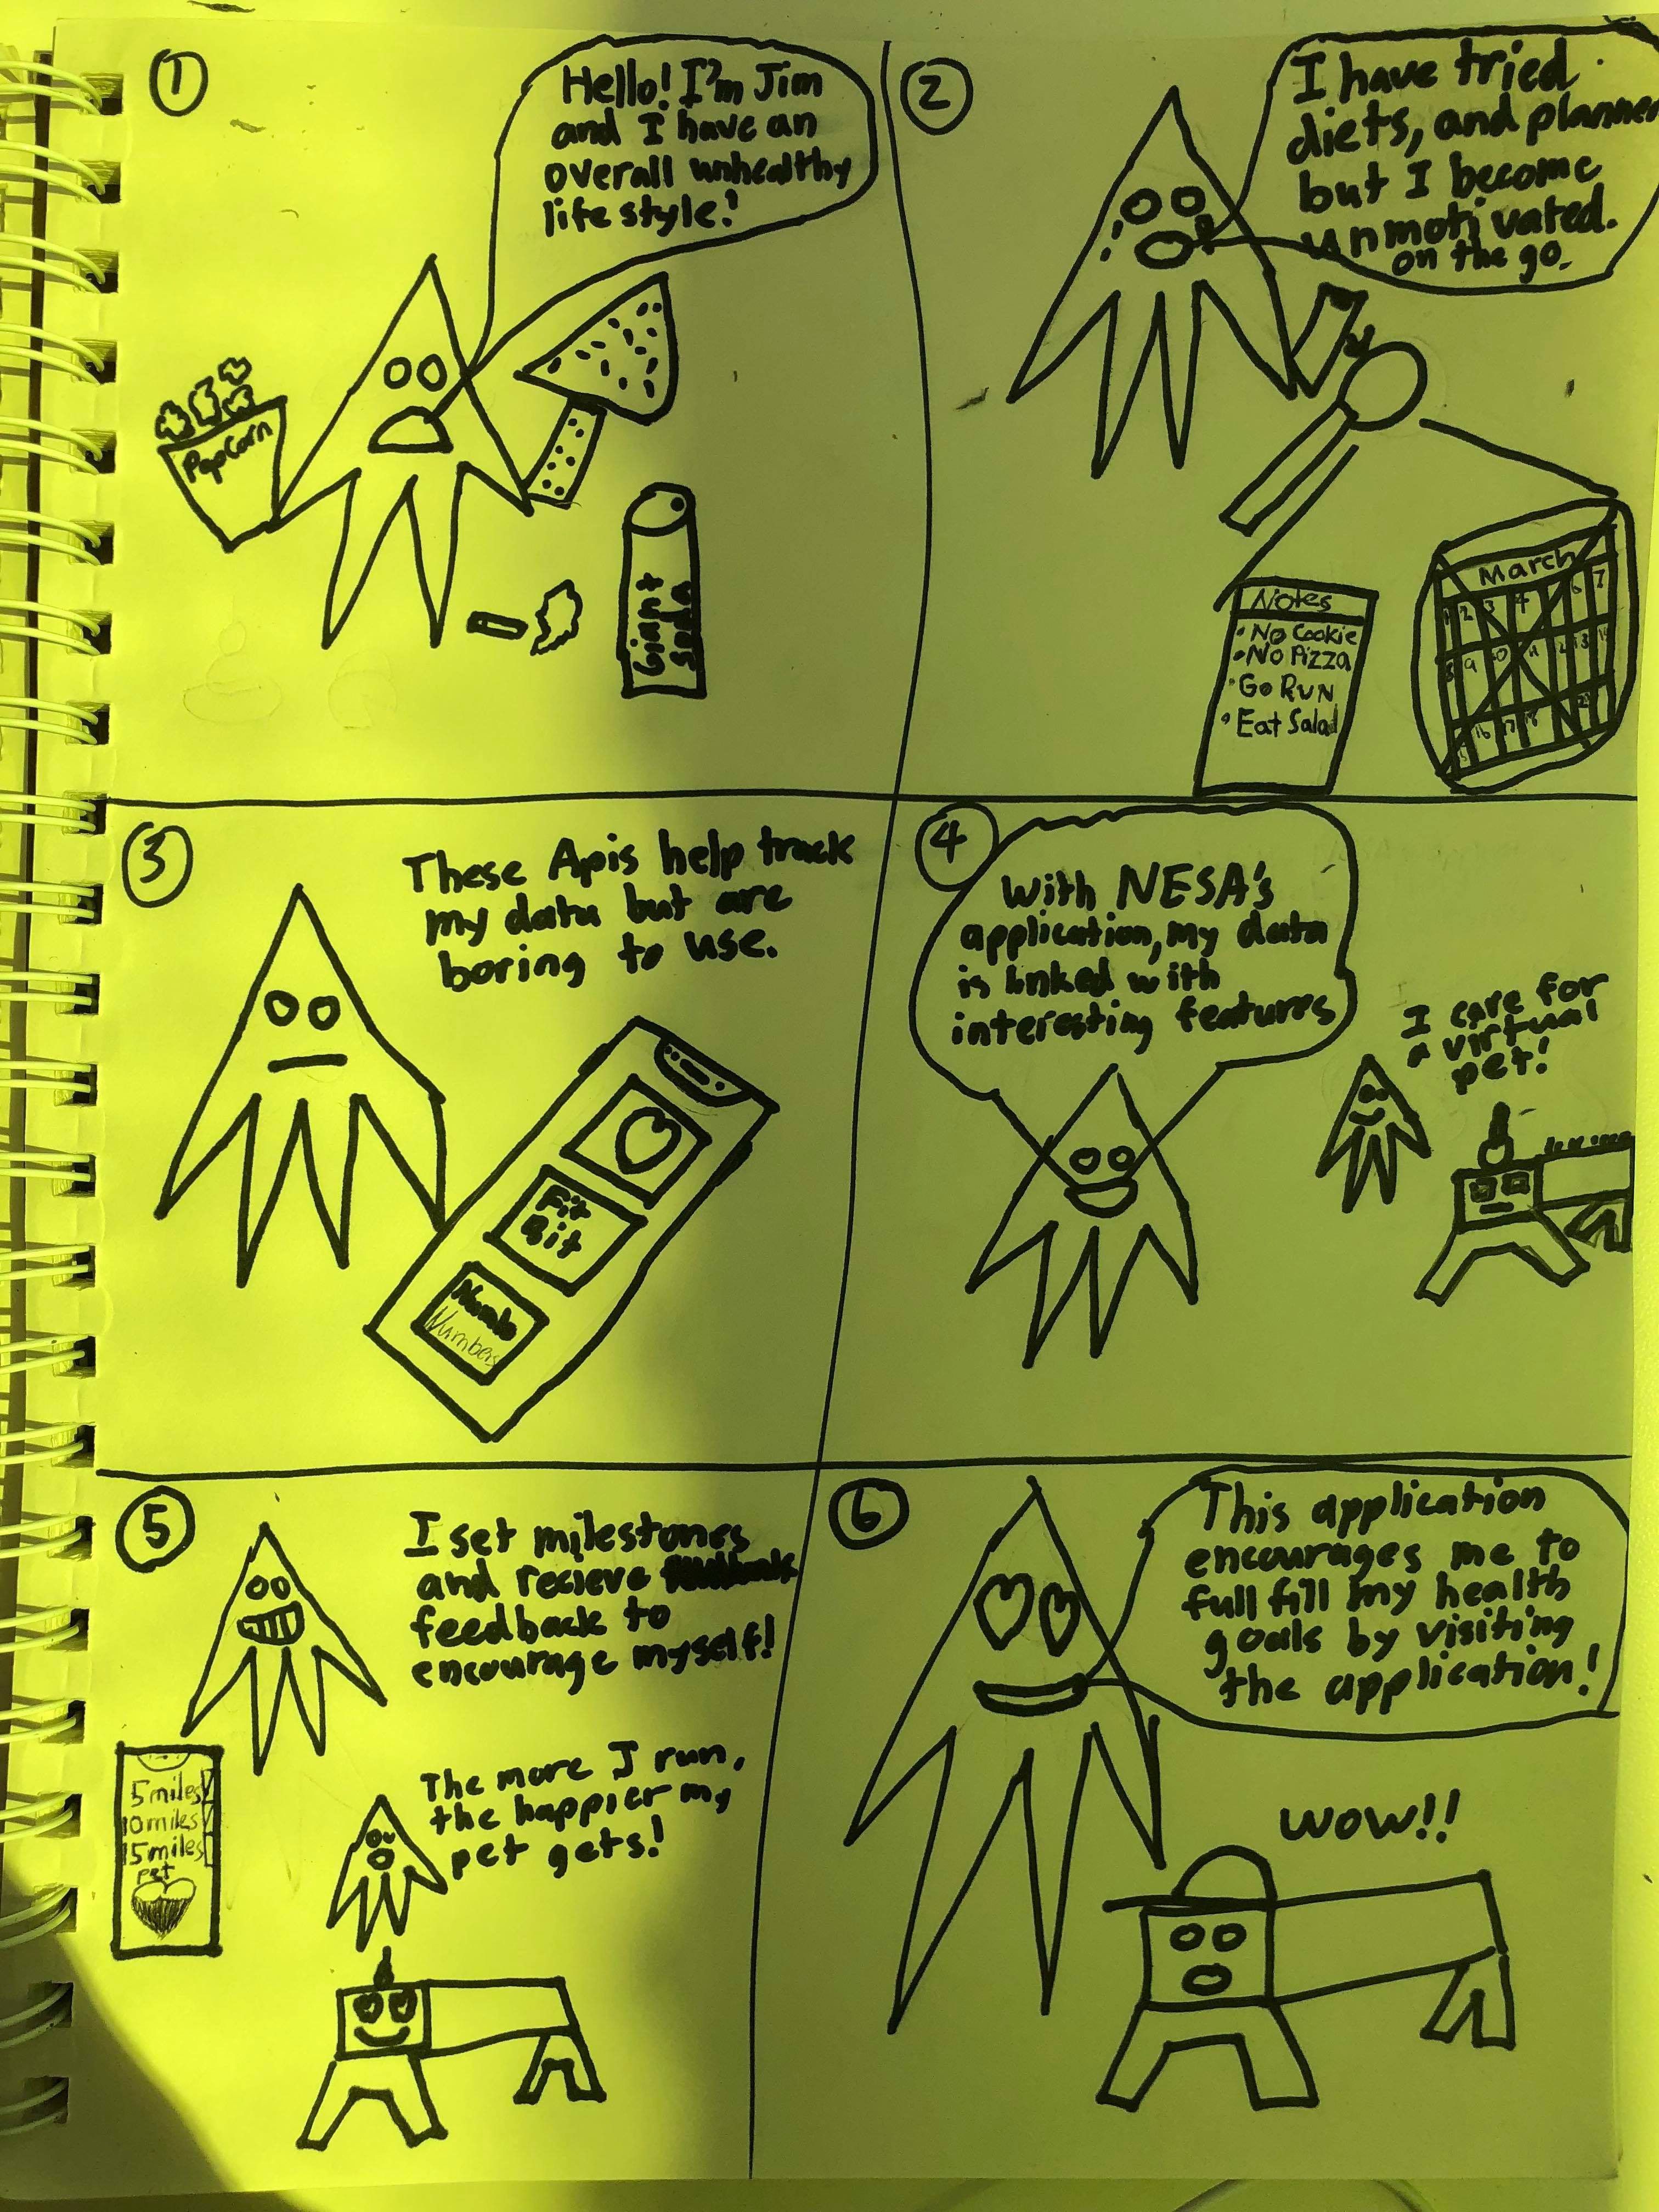 1
Hello! I'm Jim
and I have an
overall unhealthy
life style!
PopCorn
Giant
Soda
2
I have tried
diets, and planner
but I become
unmotivated.
on the go.
Notes
• No Cookie
• No Pizza
• Go RUN
• Eat Salad
March
3
These Apis help track
my data but are
boring to use.
Fit
Bit
Numb
Numbers
4
With NESA's
application, my data
is linked with
interesting features
I care for
a virtual
pet!
5
I set milestones
and recieve
feedback to
encourage myself!
5 miles
10 miles
15 miles
pet
The more I run,
the happier my
pet gets!
6
This application
encourages me to
full fill my health
goals by visiting
the application!
WOW!!